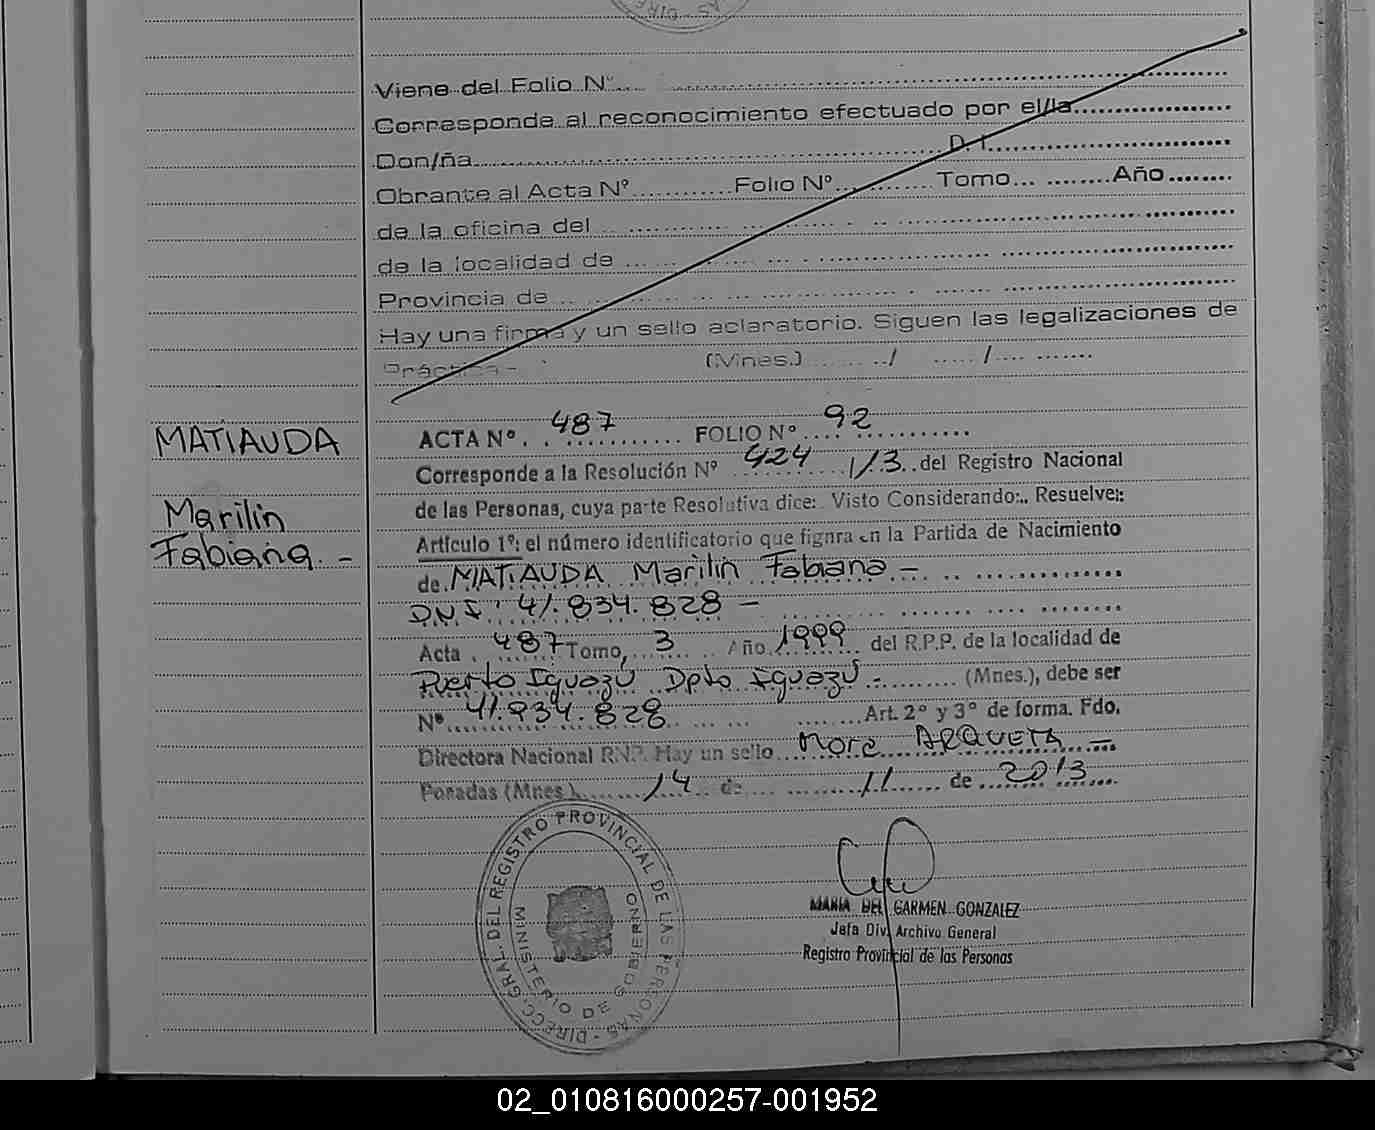 Viene del Folio Nº
Corresponde al reconocimiento efectuado por el/la
Don/ña D. I.
Obrante al Acta Nº Folio Nº Tomo Año
de la oficina del
de la localidad de
Provincia de
Hay una firma y un sello aclaratorio. Siguen las legalizaciones de
Práctica - (Mnes.) / /
MATIAUDA
Marilin
Fabiana. -
ACTA Nº 487 FOLIO Nº 92
Corresponde a la Resolución Nº 424 1/3 del Registro Nacional
de las Personas, cuya parte Resolutiva dice: Visto Considerando:.. Resuelve::
Artículo 1º: el número identificatorio que fignra en la Partida de Nacimiento
de MATIAUDA Marilin Fabiana -
D.N.I: 41.834.828 -
Acta 487 Tomo, 3 Año 1999 del R.P.P. de la localidad de
Puerto Iguazú Dpto Iguazú - (Mnes.), debe ser
Nº 41.934.828 Art. 2º y 3º de forma. Fdo.
Directora Nacional RNP. Hay un sello Mora ARQUETA -
Posadas (Mnes.) 14 de 11 de 2013
DIRECC. GRAL. DEL REGISTRO PROVINCIAL DE LAS PERSONAS -
MINISTERIO DE GOBIERNO
MARIA DEL CARMEN GONZALEZ
Jefa Div. Archivo General
Registro Provincial de las Personas
02_010816000257-001952